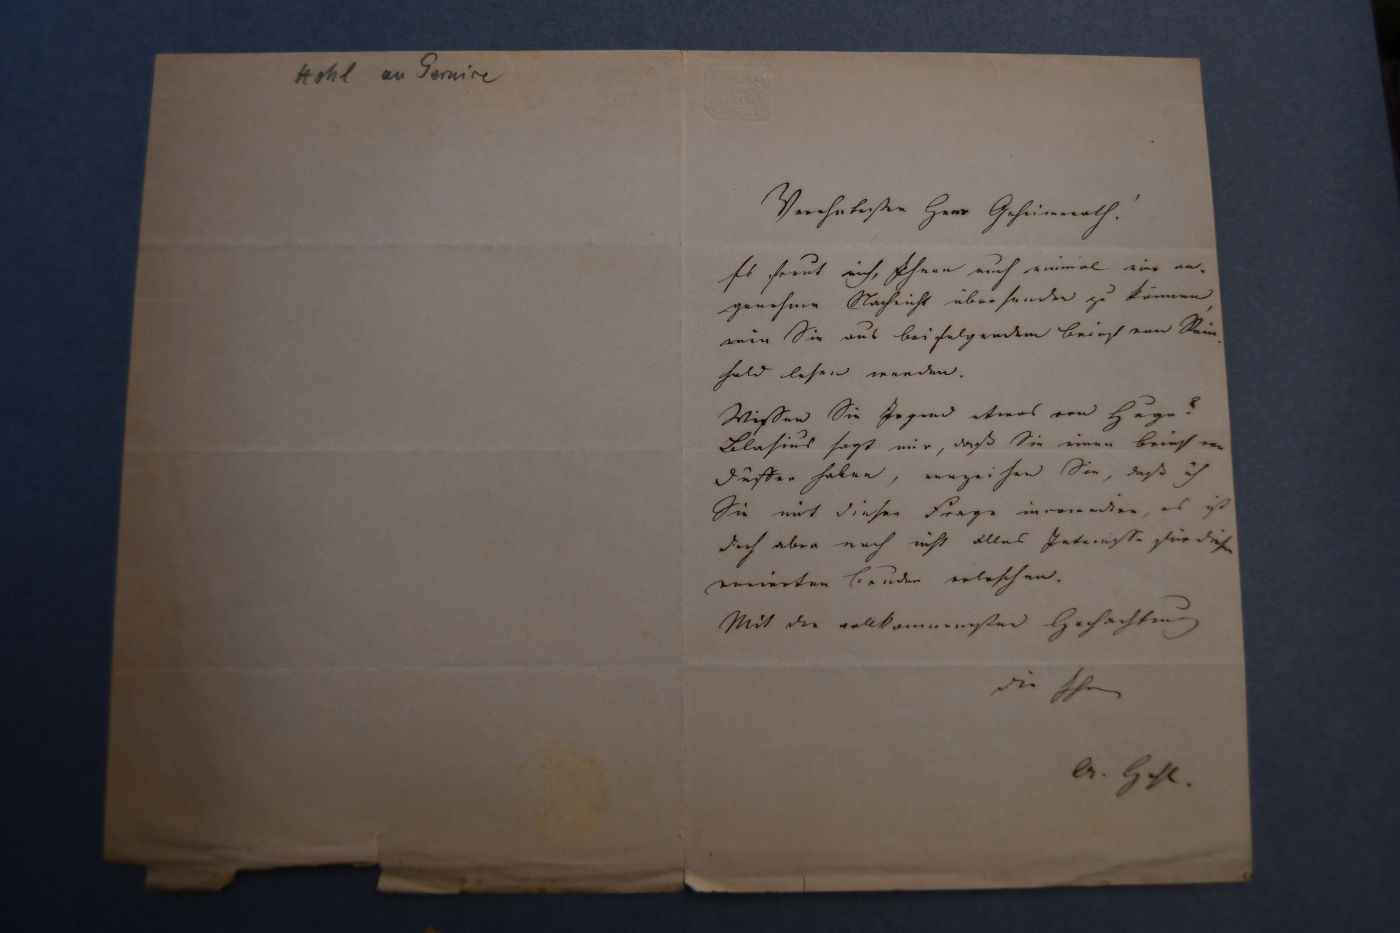 Hohl an Pernice
Verehrtester Herr Geheimerath!
Es freut mich, Ihnen auch einmal eine an-
genehme Nachricht übersenden zu können,
wie Sie aus beifolgendem Brief von Rein-
hold lesen werden.
Wissen Sie Irgend etwas von Hugo?
Blasius sagt mir, daß Sie einen Brief von
haben, verzeihen Sie, daß ich
Sie mit dieser Frage incommodire, es ist
doch aber noch nicht alles Interesse für diesen
verirrten Bruder erloschen.
Mit der vollkommensten Hochachtung
die Ihre
A. Hohl.